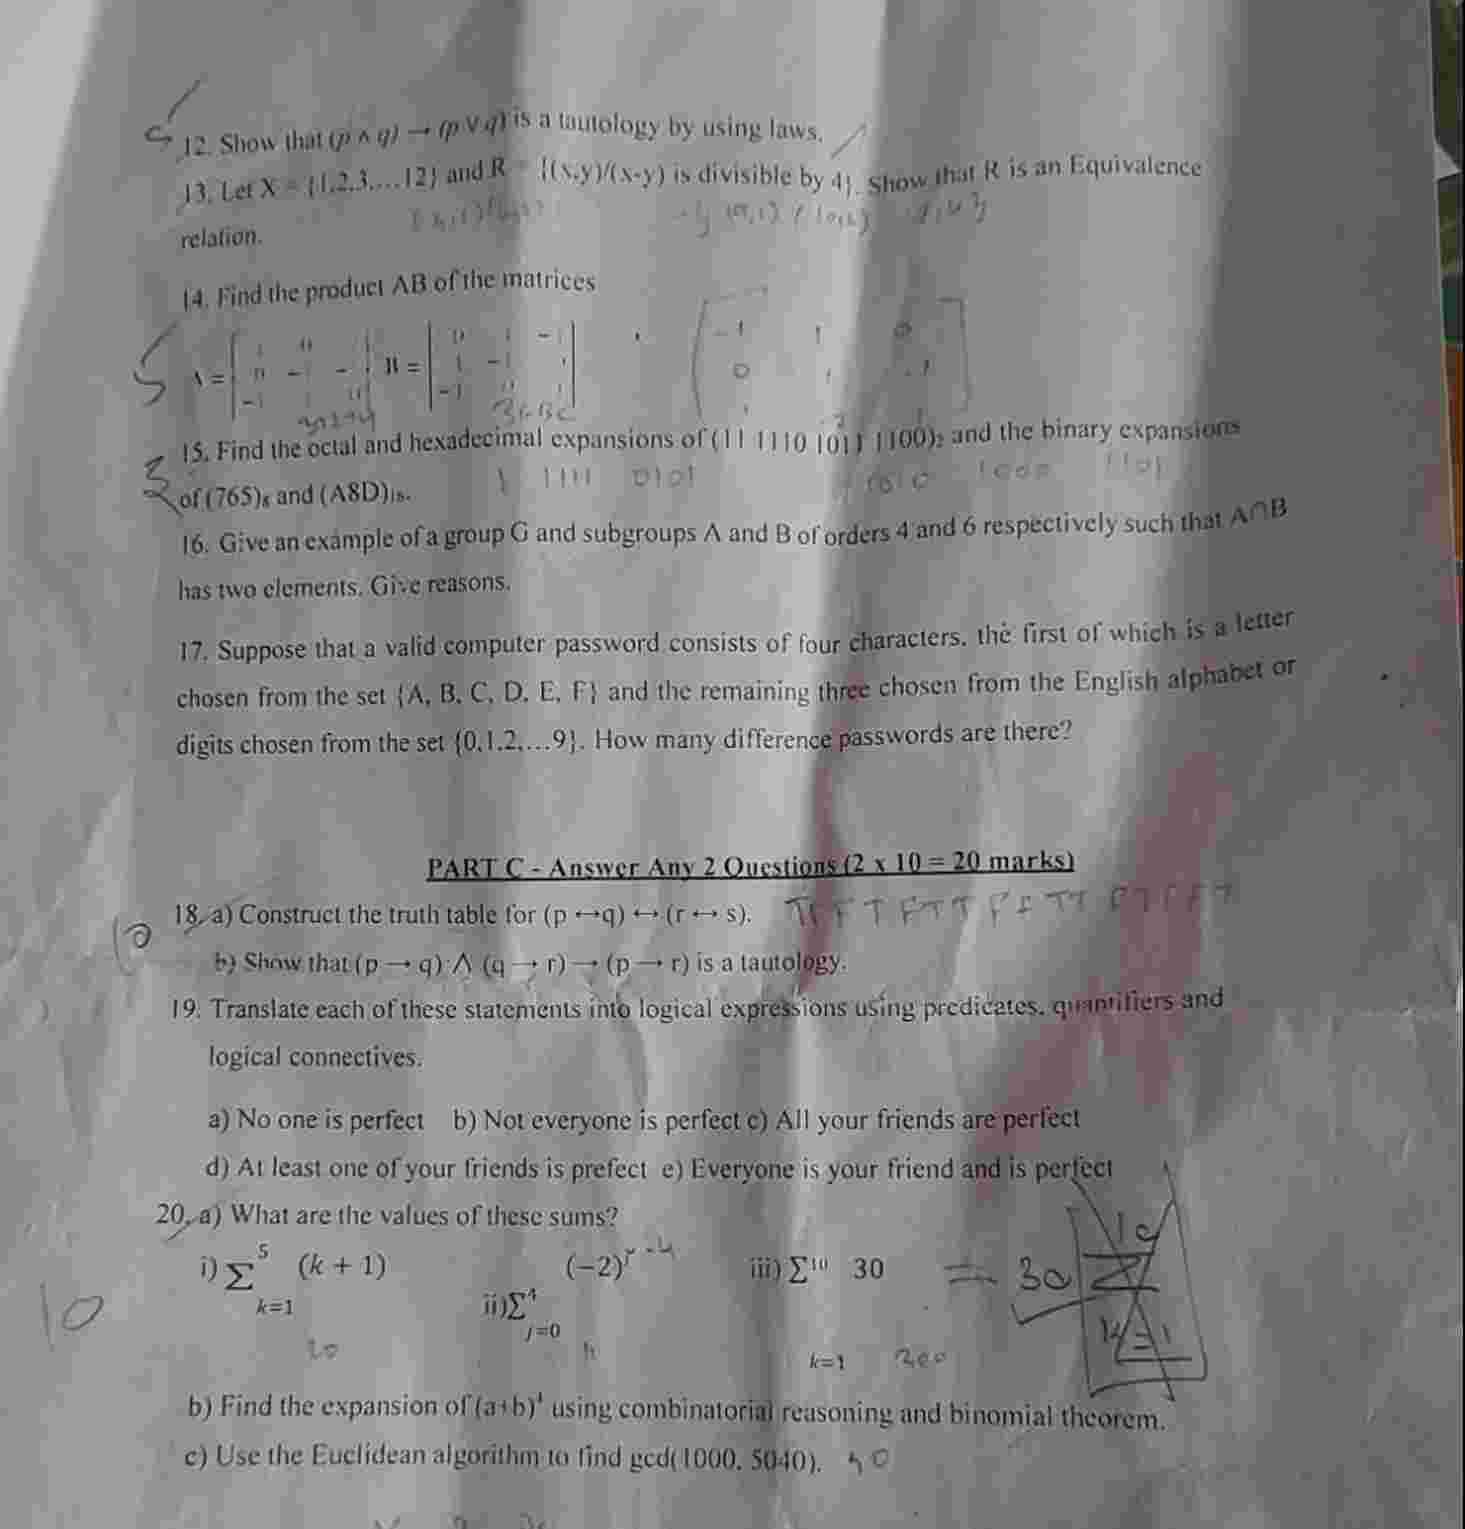 12. Show that (p ∧ q) → (p ∨ q) is a tautology by using laws.
13. Let X = {1,2,3,...12} and R = {(x,y)/(x-y) is divisible by 4}. Show that R is an Equivalence
relation.
14. Find the product AB of the matrices
5
A = B =
15. Find the octal and hexadecimal expansions of (11 1110 1011 1100)₂ and the binary expansions
1 1111 0101 1010 1000 1101
of (765)₈ and (A8D)₁₆.
16. Give an example of a group G and subgroups A and B of orders 4 and 6 respectively such that A∩B
has two elements. Give reasons.
17. Suppose that a valid computer password consists of four characters, the first of which is a letter
chosen from the set {A, B, C, D, E, F} and the remaining three chosen from the English alphabet or
digits chosen from the set {0,1,2,...9}. How many difference passwords are there?
PART C - Answer Any 2 Questions (2 x 10 = 20 marks)
18. a) Construct the truth table for (p ↔q) ↔ (r ↔ s).
10
b) Show that (p → q) ∧ (q → r) → (p → r) is a tautology.
19. Translate each of these statements into logical expressions using predicates, quantifiers and
logical connectives.
a) No one is perfect b) Not everyone is perfect c) All your friends are perfect
d) At least one of your friends is prefect e) Everyone is your friend and is perfect
20. a) What are the values of these sums?
i) ∑ 5 k=1 (k + 1) ii) ∑ 4 j=0 (−2)ʲ iii) ∑ 10 k=1 30 = 30
10
20 11 300
b) Find the expansion of (a+b)⁴ using combinatorial reasoning and binomial theorem.
c) Use the Euclidean algorithm to find gcd(1000, 5040).